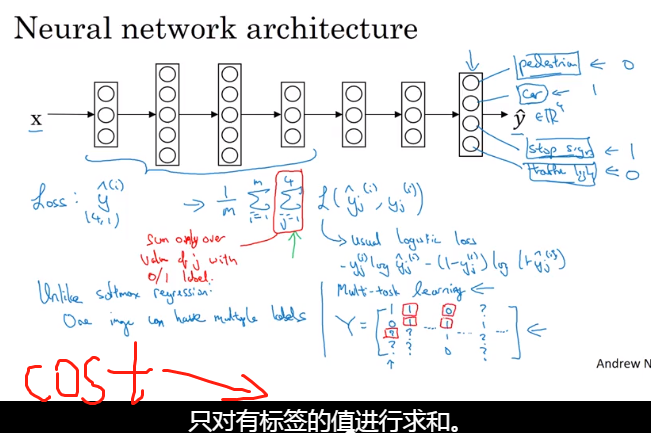 Neural network architecture
pedestrian ← 0
car ← 1
x
ŷ ∈ ℝ⁴
stop sign ← 1
traffic light ← 0
Loss: ŷ^(i) → 1/m Σ_{i=1}^{m} Σ_{j=1}^{4} L(ŷ_j^(i), y_j^(i))
(4,1)
sum only over
value of j with
0/1 label.
usual logistic loss
-y_j^(i) log ŷ_j^(i) - (1-y_j^(i)) log (1-ŷ_j^(i))
Unlike softmax regression:
One image can have multiple labels
Multi-task learning ←
Y = [
1 1 0 ?
0 1 ... 1 ... 1 ...
? ? 1 ?
? ? 0 ?
] ←
Andrew N
cost →
只对有标签的值进行求和。